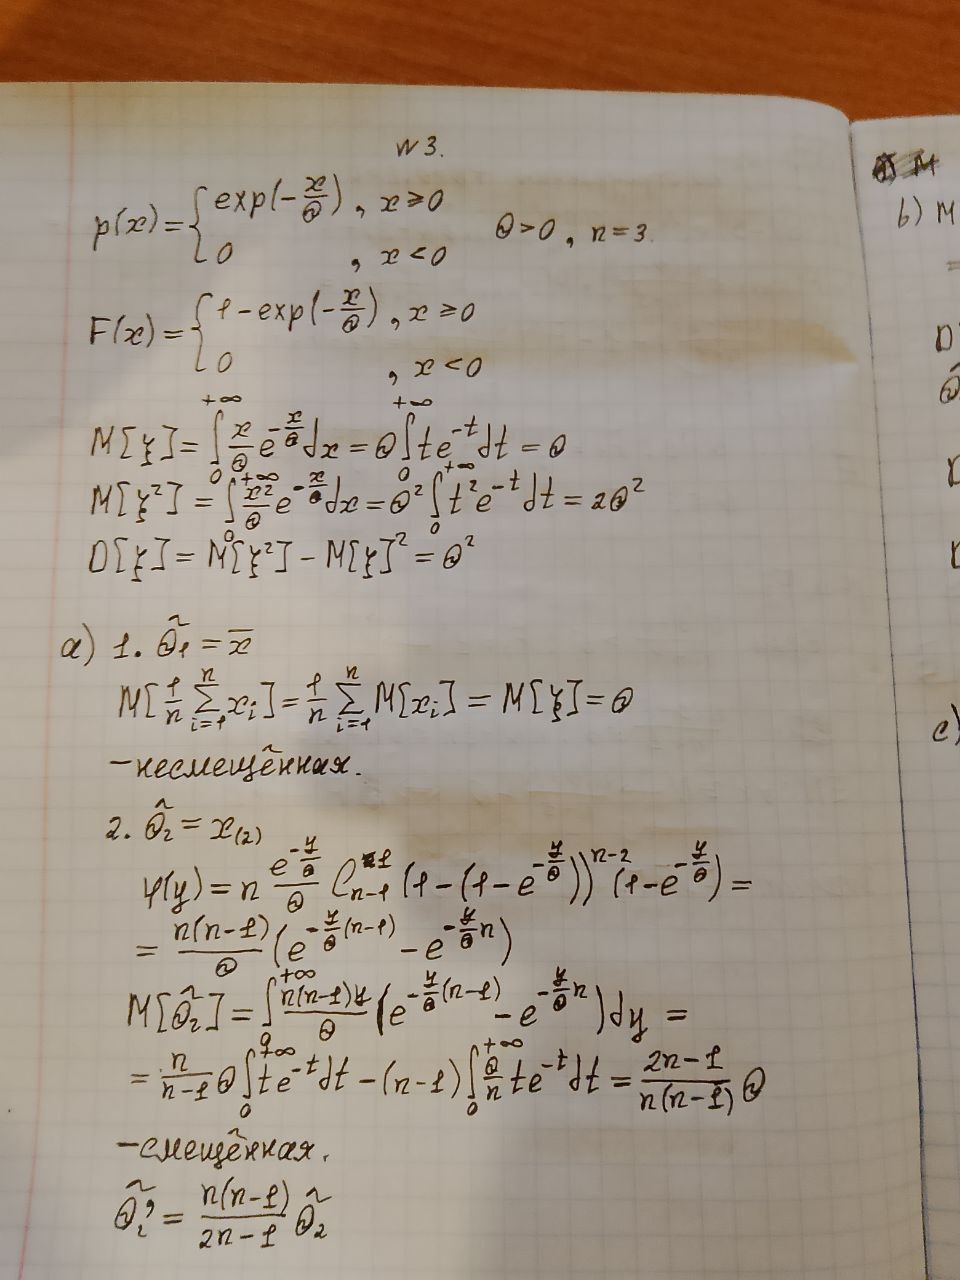 N 3.
p(x) = { exp(-x/Θ), x ≥ 0
0, x < 0 Θ > 0, n = 3.
F(x) = { 1 - exp(-x/Θ), x ≥ 0
0, x < 0
M[ξ] = ∫₀^{+∞} x/Θ e^{-x/Θ} dx = Θ ∫₀^{+∞} t e^{-t} dt = Θ
M[ξ²] = ∫₀^{+∞} x²/Θ e^{-x/Θ} dx = Θ² ∫₀^{+∞} t² e^{-t} dt = 2Θ²
D[ξ] = M[ξ²] - M[ξ]² = Θ²
a) 1. Θ̃₁ = x̄
M[1/n Σ_{i=1}^{n} x_i] = 1/n Σ_{i=1}^{n} M[x_i] = M[ξ] = Θ
- несмещённая.
2. Θ̃₂ = x₍₂₎
φ(y) = n e^{-y/Θ}/Θ C_{n-1}^{1} (1 - (1 - e^{-y/Θ}))^{n-2} (1 - e^{-y/Θ}) =
= n(n-1)/Θ (e^{-y/Θ (n-1)} - e^{-y/Θ n})
M[Θ̃₂] = ∫₀^{+∞} n(n-1)y/Θ (e^{-y/Θ (n-1)} - e^{-y/Θ n}) dy =
= n/(n-1) Θ ∫₀^{+∞} t e^{-t} dt - (n-1) ∫₀^{+∞} Θ/n t e^{-t} dt = (2n-1)/(n(n-1)) Θ
- смещённая.
Θ̃₂' = n(n-1)/(2n-1) Θ̃₂
b) M
=
D
Θ̃
c)